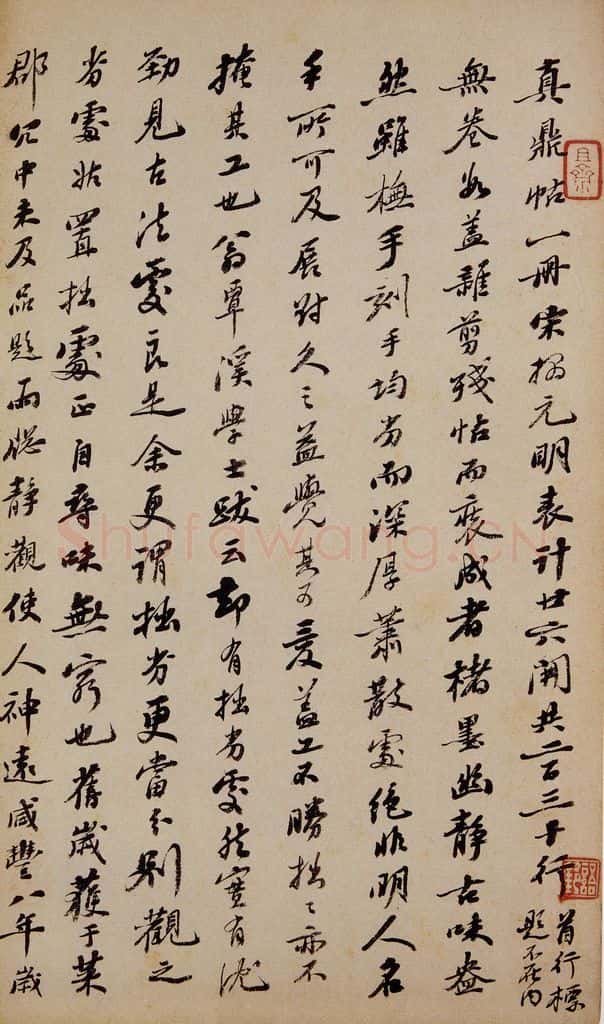 真鼎帖一冊宋搨元明表計廿六開共二百三十行首行標
題不在內
無卷数蓋雜剪殘帖而裒成者楮墨幽靜古味盎
然雖橅手刻手均劣而深厚蕭散處絕非明人名
手所可及展對久之益覺其可愛蓋工不勝拙〻亦不
掩其工也翁覃溪學士跋云却有拙劣處然實有沈
勁見古法處良是余更謂拙劣更當分別觀之
劣處姑置拙處正自尋味無窮也舊歲獲于萊
郡冗中未及品題雨窓靜觀使人神遠咸豐八年歲
Shufawang.CN